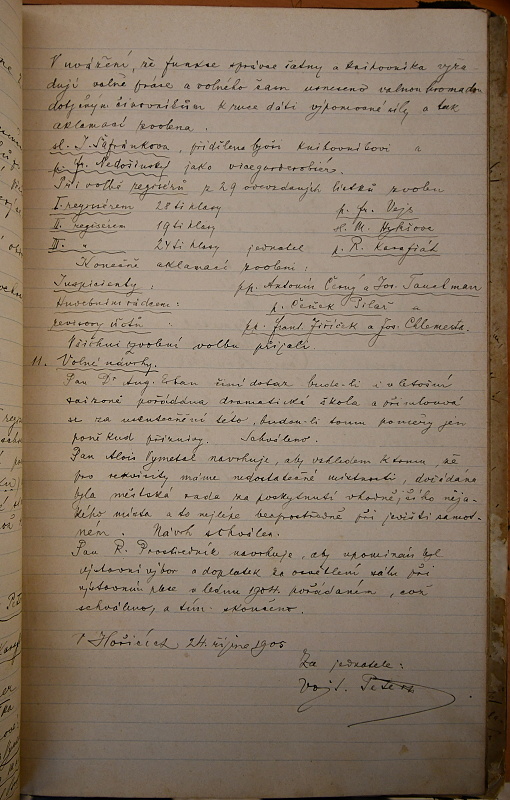 V uvážení, že funkce správce šatny a knihovníka vyža-
dují valně práce a volného času usneseno valnou hromadou
dotyčným činovníkům k ruce dáti výpomocné síly a tak
aklamací zvolena.
sl. J. Šafránkova, přidělena byvši knihovníkovi a
p. Fr. Nedošínský jako vicegarderobiér.
Při volbě regisérů z 29 odevzdaných lístků zvolen
I. regisérem 28ti hlasy p. Fr. Vejs
II. regisérem 19ti hlasy sl. M.
III. " 24ti hlasy jednatel p. R. Karafiát
Konečně aklamací zvoleni:
Inspicienty: pp. Antonín Černý a Jos. Tauchman
Hudebním rádcem: p. Čeněk Pilař a
revisory účtů: pp. Frant. Jiřiček a Jos. Chlomosta.
Všichni zvolení volbu přijali.
11. Volné návrhy.
Pan Dr Aug. činí dotaz bude-li i v letošní
saizoně pořádána dramatická škola a přimlouvá
se za uskutečnění této, budou-li tomu poměry jen
poněkud příznivy. Schváleno.
Pan Alois Vymetal navrhuje, aby vzhledem k tomu, že
pro rekvisity máme nedostatečné místnosti, dožádána
byla městská rada za poskytnutí vhodnějšího něja-
kého místa a to nejlépe bezprostředně při jevišti samot-
ném. Návrh schválen.
Pan R. Prostředník navrhuje, aby upomínán byl
výstavní výbor o doplatek za osvětlení sálu při
výstavním plese v lednu 1904 pořádaném, což
schváleno, a tím skončeno.
V Hořicích 24. října 1905
Za jednatele:
Vojt.